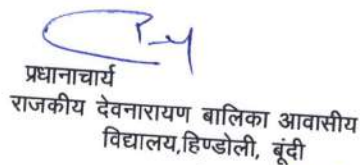 प्रधानाचार्य
राजकीय देवनारायण बालिका आवासीय
विद्यालय,हिण्डोली, बूंदी